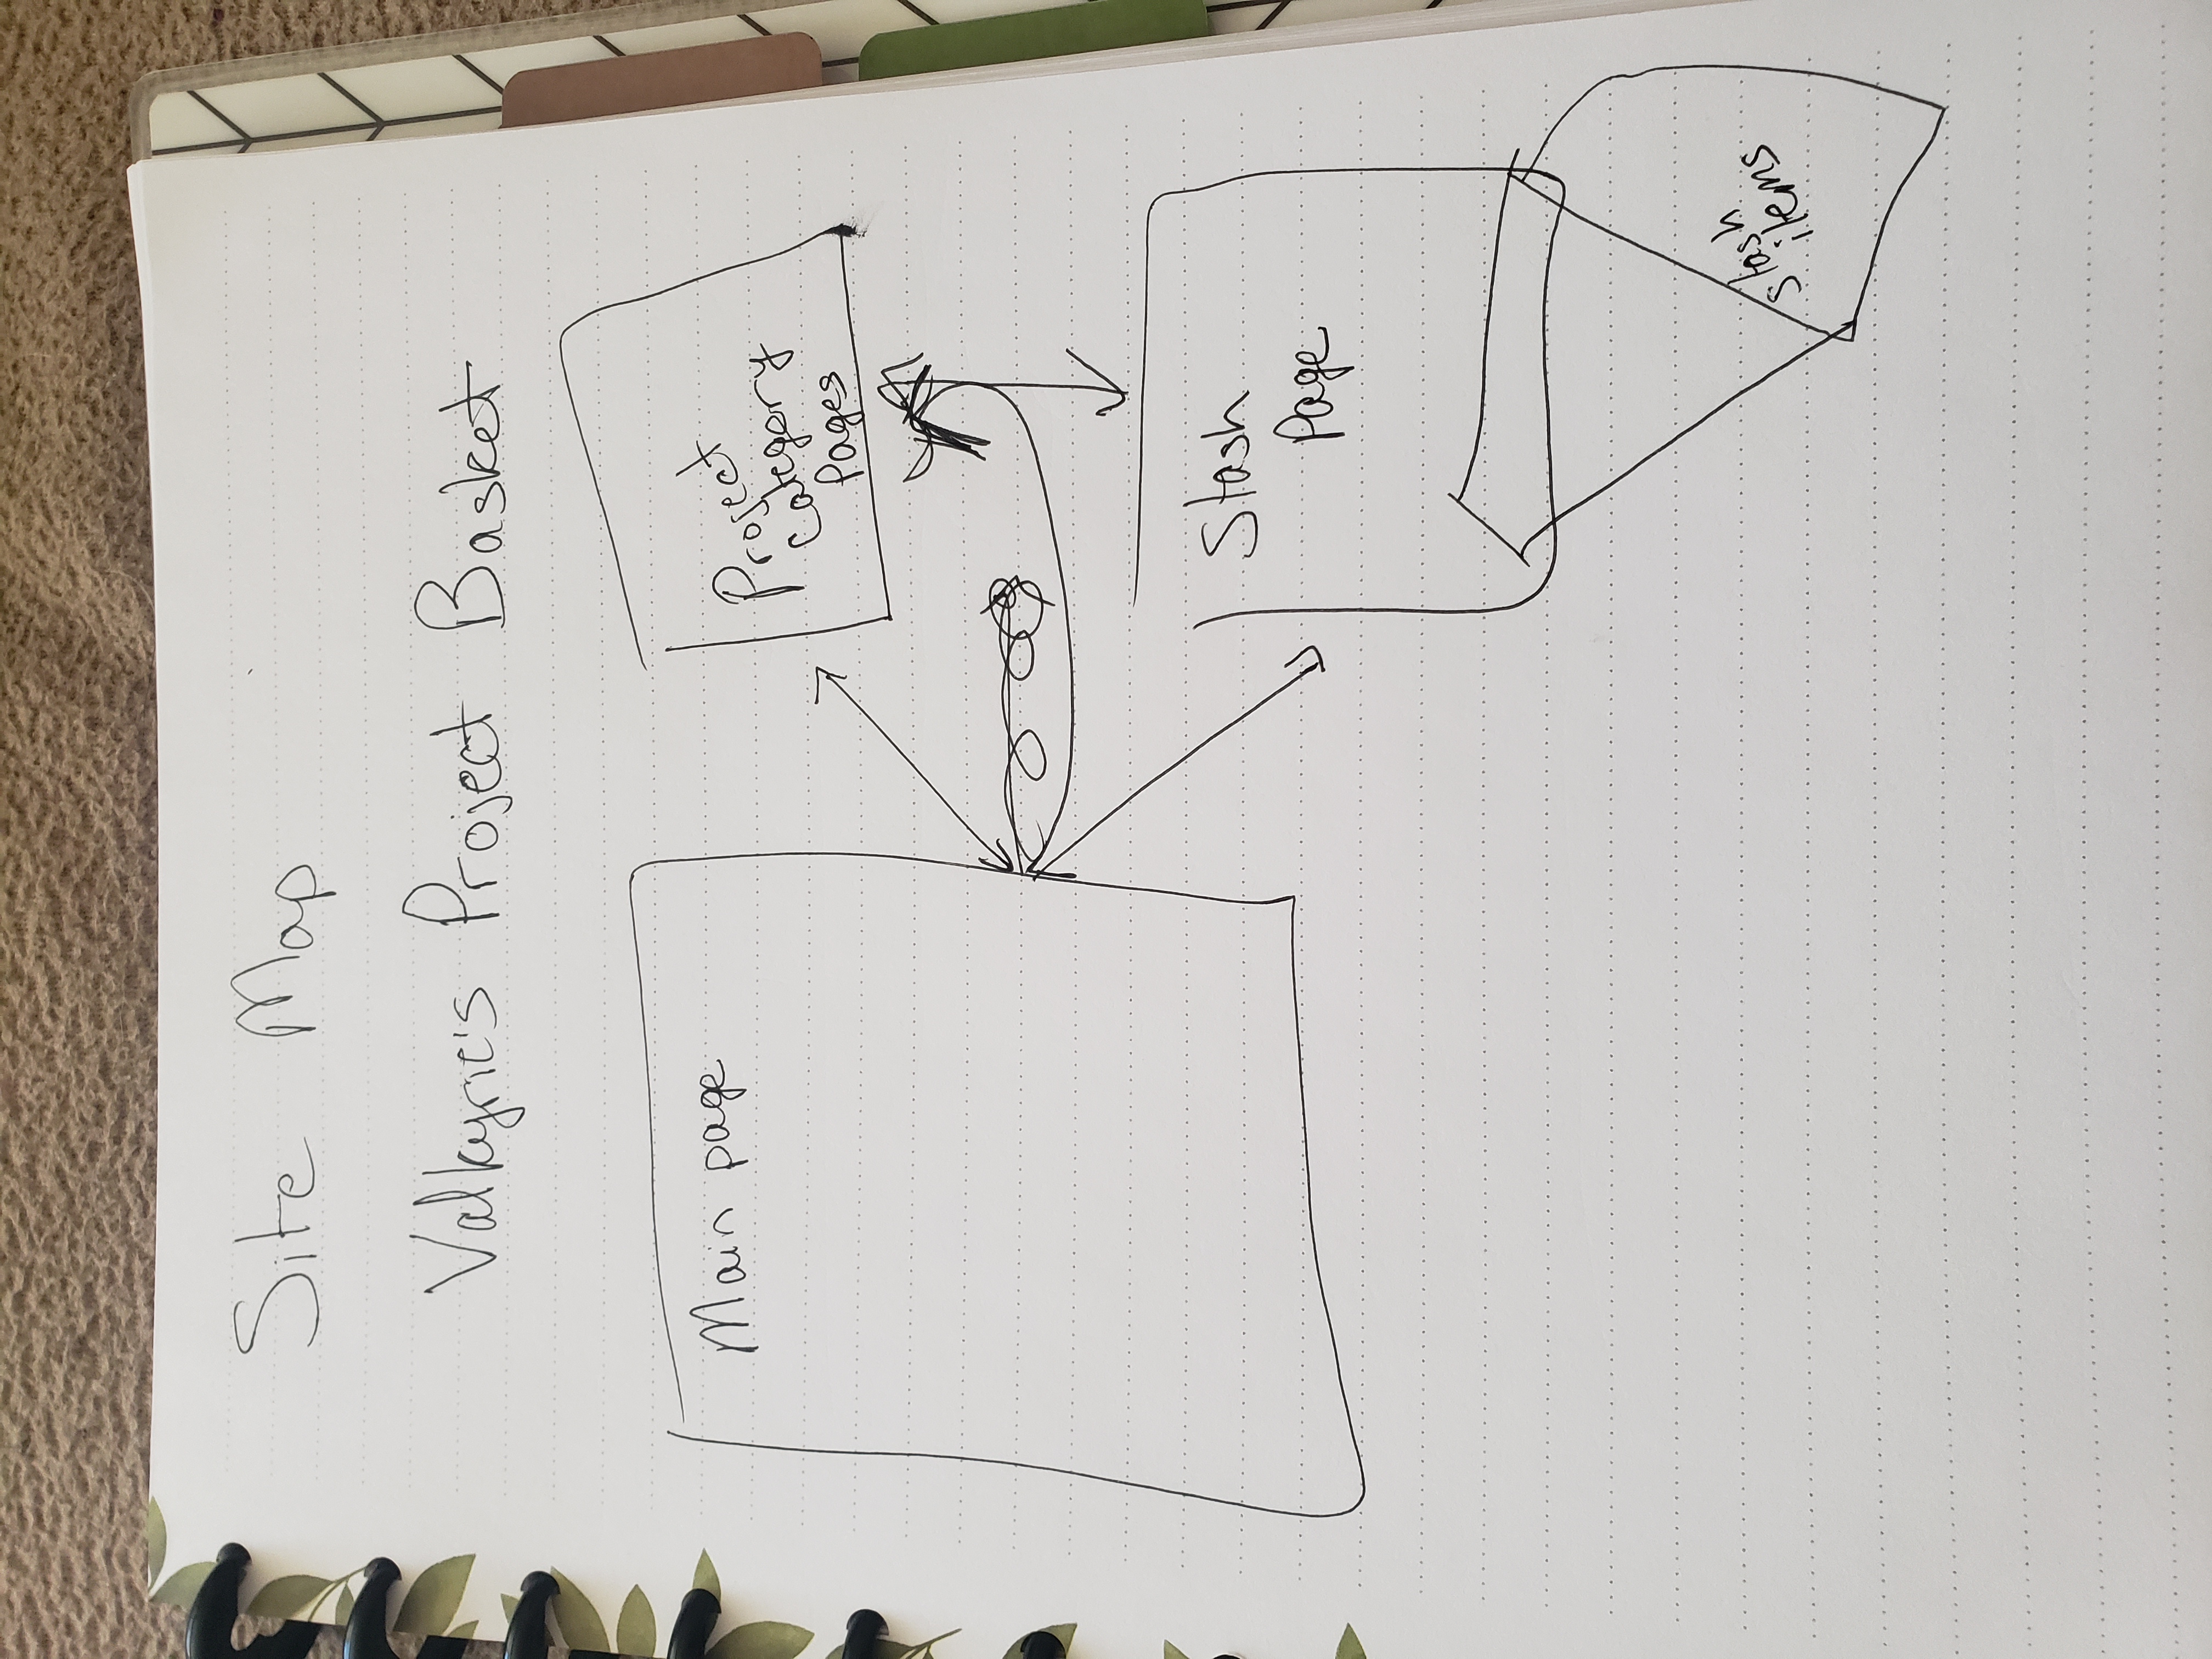 Site Map
Valkyrie's Project Basket
Main page
Project
Category
Pages
Stash
Page
Stash
items